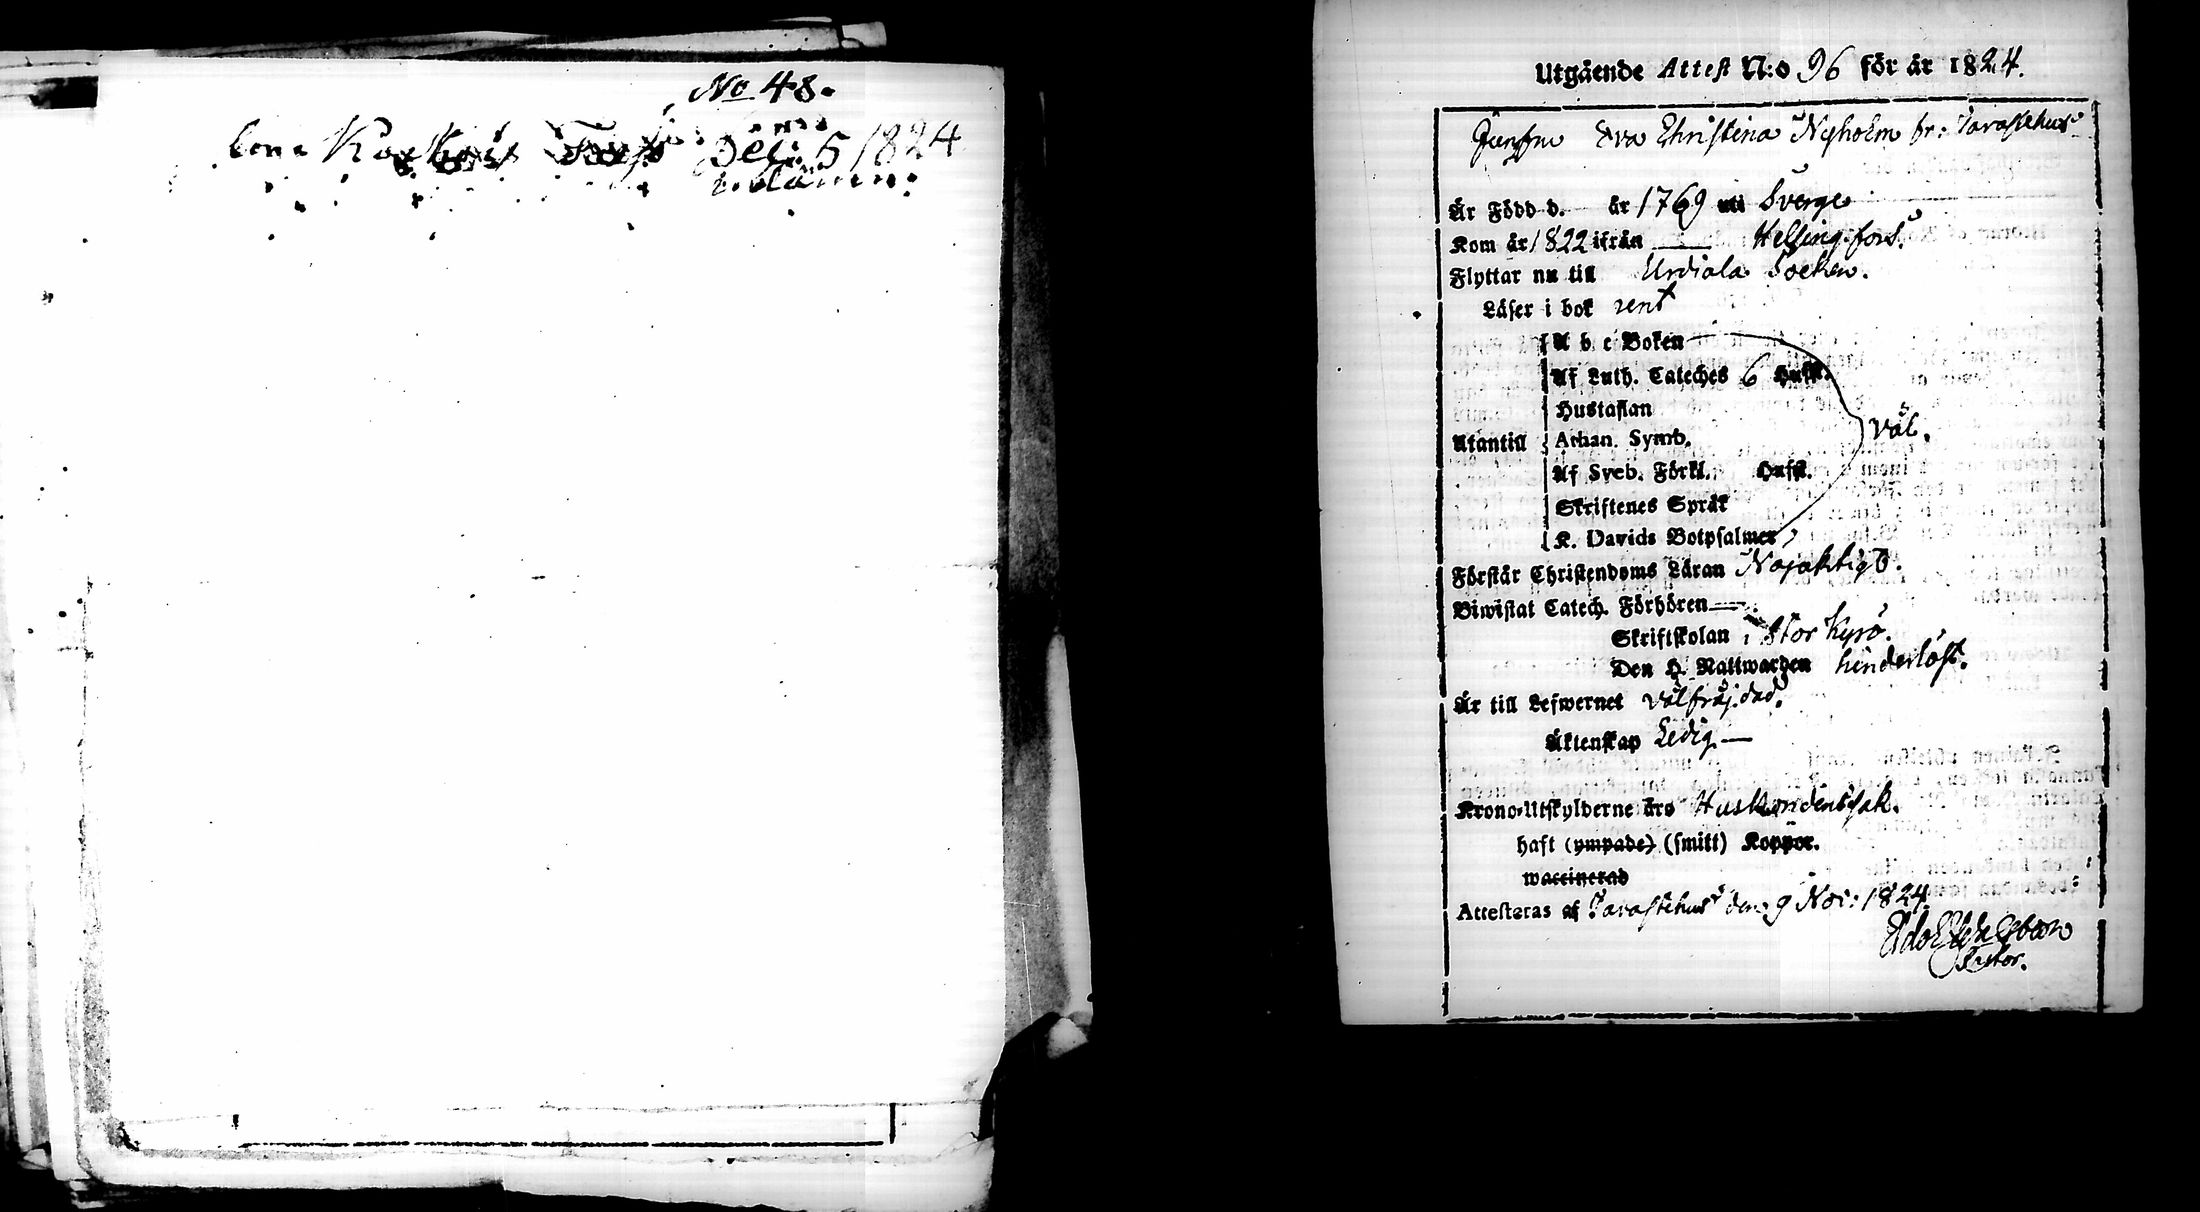 No 48.
Dec: 5 1824
Utgående Attest N:o 96 för år 1824.
Jungfru Eva Christina Nyholm fr: Tavastehus
Är Född d. år 1769 uti Sverge
Kom år 1822 ifrån Helsingfors.
Flyttar nu till Urdiala Socken.
Läser i bok rent
A b c Boken
Af Luth. Cateches 6 Hufst.
Hustaflan
Utantill Athan. Symb. väl.
Af Sveb. Förkl. Hufst.
Skriftenes Språk
K. Davids Botpsalmer
Förstår Christendoms Läran Nöjaktigt.
Biwistat Catech. Förhören —
Skriftskolan i Stor Kyro.
Den H. Nattwarden hinderlöst.
Är till Lefwernet välfräjdad.
Äktenskap Ledig —
Krono-Utskylderne äro Husbondens sak.
haft (ympade) (smitt) Koppor.
waccinerad
Attesteras af Tavastehus den 9 Nov: 1824.
Pastor.